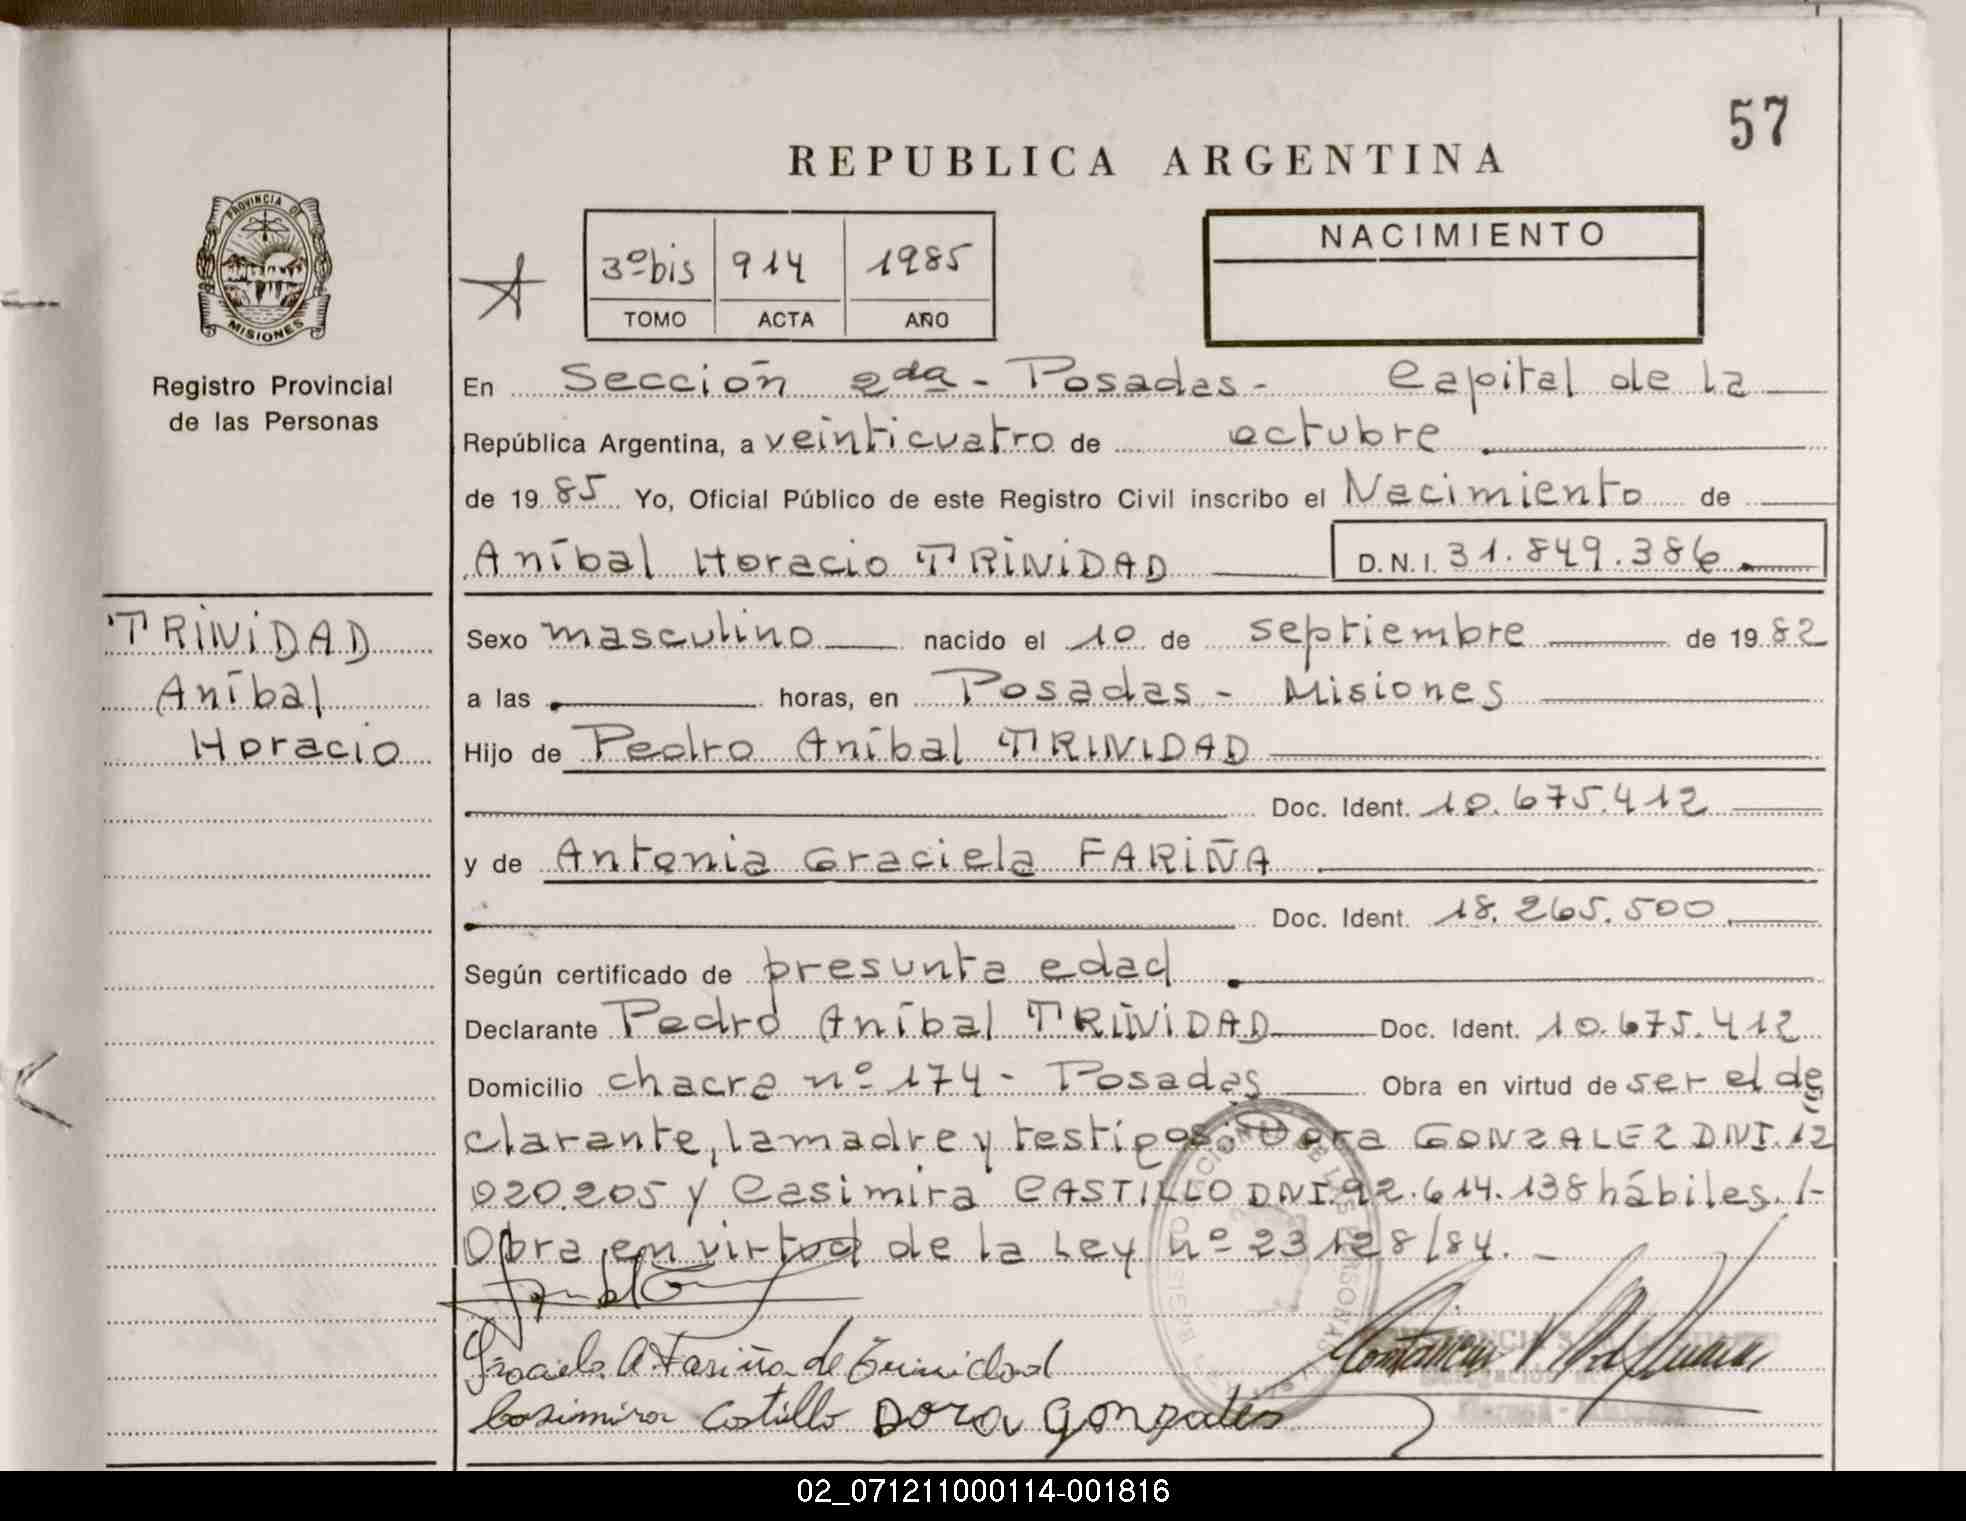 57
REPUBLICA ARGENTINA
PROVINCIA DE
MISIONES
Registro Provincial
de las Personas
3º bis 914 1985
TOMO ACTA AÑO
NACIMIENTO
En Sección 2da - Posadas - Capital de la
República Argentina, a veinticuatro de octubre
de 1985 Yo, Oficial Público de este Registro Civil inscribo el Nacimiento de
Aníbal Horacio TRINIDAD D.N.I. 31.849.386
TRINIDAD
Aníbal
Horacio
Sexo masculino nacido el 10 de septiembre de 1982
a las horas, en Posadas - Misiones
Hijo de Pedro Aníbal TRINIDAD
Doc. Ident. 10.675.412
y de Antonia Graciela FARIÑA
Doc. Ident. 18.265.500
Según certificado de presunta edad
Declarante Pedro Aníbal TRINIDAD Doc. Ident. 10.675.412
Domicilio chacra nº 174 - Posadas Obra en virtud de ser el de
clarante, la madre y testigos: Dora GONZALEZ DNI. 12
020.205 y Casimira CASTILLO DNI. 92.614.138 hábiles. /-
Obra en virtud de la Ley nº 23128/84. -
Graciela A. Fariña de Trinidad
Casimira Castillo Dora Gonzales
02_071211000114-001816